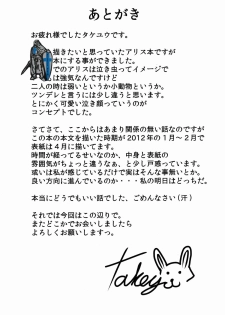 あとがき
お疲れ様でしたタケユウです。
描きたいと思っていたアリス本ですが
本にする事ができました。
でのアリスは泣き虫ってイメージで
は強気なんですけど
二人の時は弱いというか小動物というか。
ツンデレと言うには少し違うと思います。
とにかく可愛い泣き顔っていうのが
コンセプトでした。
さてさて、ここからはあまり関係の無い話なのですが
この本の本文を描いた時期が２０１２年の１月～２月で
表紙は４月に描いてます。
時間が経ってるせいなのか、中身と表紙の
雰囲気がちょっと違うなぁ、と少し戸惑っています。
或いは私が感じているだけで実はそんな事無いとか。
良い方向に進んでいるのか・・・私の明日はどっちだ。
本当にどうでもいい話でした、ごめんなさい（汗）
それでは今回はこの辺りで。
またどこかでお会いしましたら
よろしくお願いしますっ。